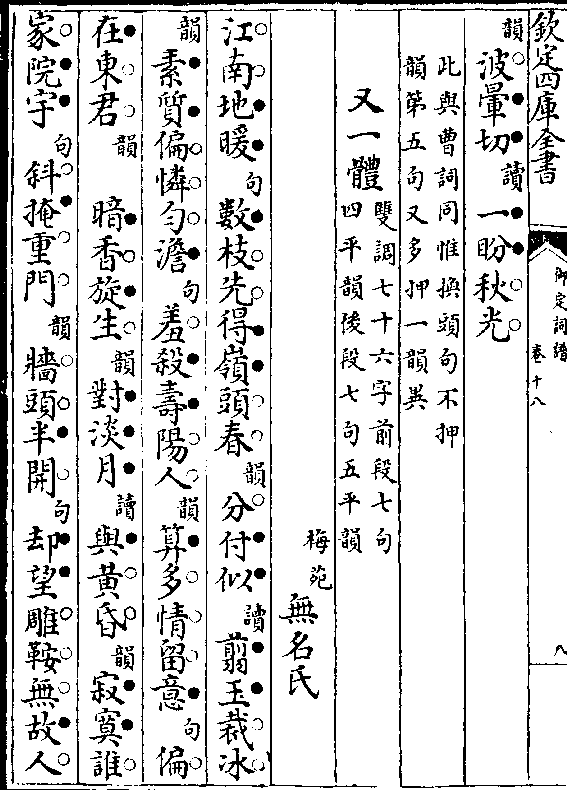 欽定四庫全書
御定詞譜
卷十八
八
韻波暈切讀一盼秋光
此與曹詞同惟換頭句不押
韻第五句又多押一韻異
又一體雙調七十六字前段七句
四平韻後段七句五平韻
梅苑無名氏
江南地暖句數枝先得嶺頭春韻分付似讀翦玉裁冰
韻素質偏憐勻澹句羞殺壽陽人韻算多情留意句偏
在東君韻 暗香旋生韻對淡月讀與黃昏韻寂寞誰
家院宇句斜掩重門韻牆頭半開句却望雕鞍無故人